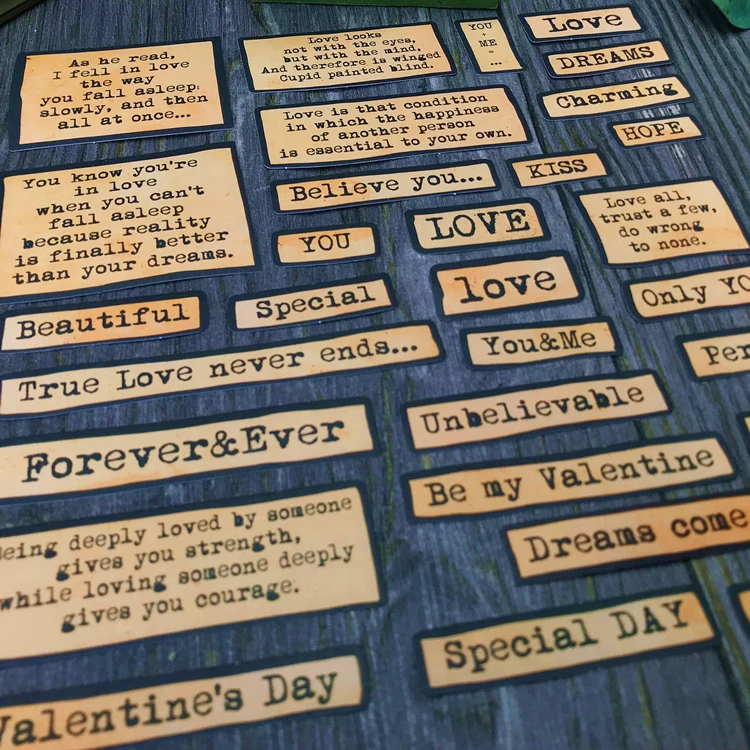 As he read,
I fell in love
the way
you fall asleep:
slowly, and then
all at once...
Love looks
not with the eyes,
but with the mind,
And therefore is winged
Cupid painted blind.
YOU
+
ME
=
...
Love
DREAMS
Charming
HOPE
Love is that condition
in which the happiness
of another person
is essential to your own.
You know you're
in love
when you can't
fall asleep
because reality
is finally better
than your dreams.
Believe you...
KISS
YOU
LOVE
Love all,
trust a few,
do wrong
to none.
Beautiful
Special
love
Only YO
True Love never ends...
You&Me
Per
Forever&Ever
Unbelievable
Be my Valentine
Dreams come
Being deeply loved by someone
gives you strength,
while loving someone deeply
gives you courage.
Special DAY
Valentine's Day